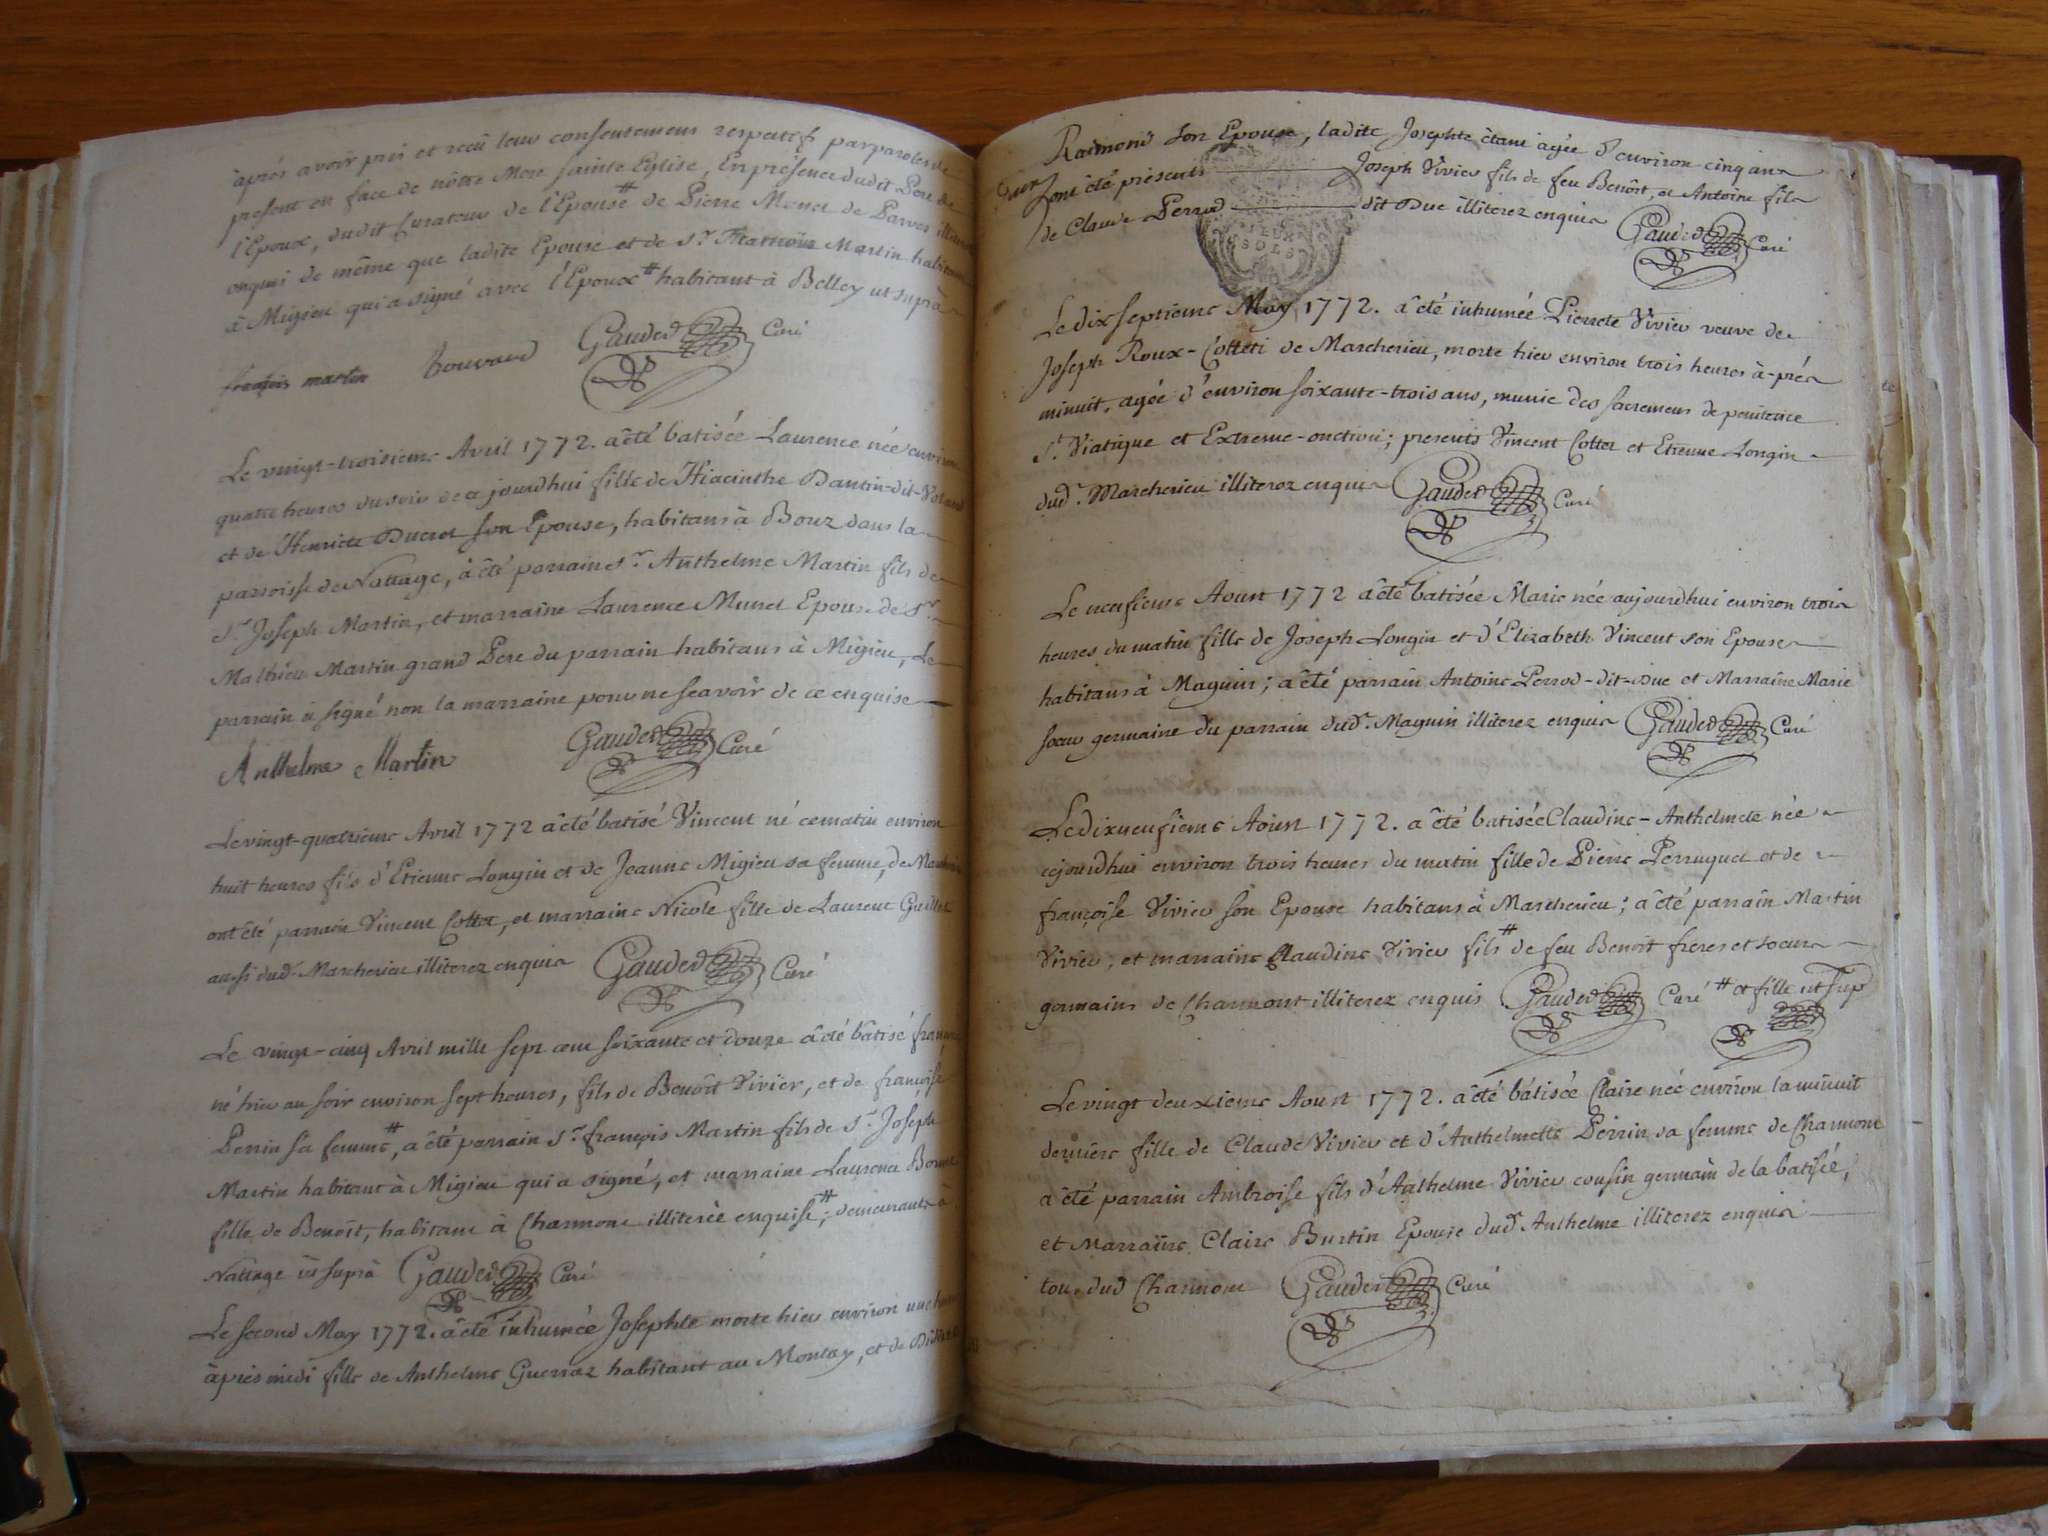 après avoir pris et reçû leur consentement respectif par paroles de
present en face de nôtre Mere Sainte Eglise, En présence dudit Pere de
l'Epoux, dudit Curateur de l'Epouse# de Pierre Monet de Parves
enquis de même que ladite Epouse et de Sr. François Martin habitant
à Migieu qui a signé avec l'Epoux# habitant à Belley ut suprà
françois martin Gaudet Curé
Le vingt-troisieme Avril 1772. a été batisée Laurence née environ
quatre heures du soir de ce jourdhui fille de Hiacinthe Dantin-dit-
et de Henriete Ducret son Epouse, habitans à Bouz dans la
parroisse de Nattage, à été parrain Sr. Anthelme Martin fils de
Sr. Joseph Martin, et marraine Laurence Munet Epouse de Sr.
Mathieu Martin grand Pere du parrain habitans à Migieu, Le
parrain a signé non la marraine pour ne sçavoir de ce enquise
Anthelme Martin Gaudet Curé
Le vingt-quatrieme Avril 1772 a été batisé Vincent né ce matin environ
huit heures fils d'Etienne Longin et de Jeanne Migieu sa femme, de
ont été parrain Vincent Cottet, et marraine Nicole fille de Laurent Guillet
aussi dud. Marcherieu illiterez enquis Gaudet Curé
Le vingt-cinq Avril mille sept cent soixante et douze a été bâtisé
né hier au soir environ sept heures, fils de Benoît Vivier, et de françoise
Perrin sa femme#, a été parrain Sr. françois Martin fils de Sr. Joseph
Martin habitant à Migieu qui a signé, et marraine Laurence
fille de Benoît, habitant à Charmont illiterée enquise,# demeurants à
Nattage ut suprà Gaudet Curé
Le second May 1772. a été inhumée Josephte morte hier environ une heure
après midi fille de Anthelme Guerraz habitant au Montay, et de
Raimond son Epouse, ladite Josephte étant agée d'environ cinq ans
sont été présents Joseph Vivier fils de feu Benôit, et Antoine fils
de Claude Perrod dit Duc illiterez enquis Gaudet Curé
DEUX
SOLS
Le dix septieme May 1772. a été inhumée Pierrete Vivier veuve de
Joseph Roux-Colleti de Marcherieu, morte hier environ trois heures à-prés
minuit, agée d'environ soixante-trois ans, munie des sacremens de penitence
St. Viatique et Extreme-onction; presents Vincent Cottet et Etienne Longin
dud. Marcherieu illiterez enquis Gaudet Curé
Le neufieme Aoust 1772 a été batisée Marie née aujourdhui environ trois
heures du matin fille de Joseph Longin et d'Elizabeth Vincent son Epouse
habitans à Magnin; a été parrain Antoine Perrod-dit-Duc et Marraine Marie
soeur germaine du parrain dud. Magnin illiterez enquis Gaudet Curé
Le dixneufieme Aoust 1772. a été batisée Claudine-Anthelmete née
cejourdhui environ trois heures du matin fille de Pierre Perruquet et de
françoise Vivier son Epouse habitans à Marcherieu; a été parrain Martin
Vivier, et marraine Claudine Vivier fils# de feu Benoit freres et soeurs
germains de Charmont illiterez enquis Gaudet Curé # et fille ut sup
Le vingt deuxieme Aoust 1772. a été bâtisée Claire née environ la minuit
derniere fille de Claude Vivier et d'Anthelmette Perrin sa femme de Charmont
a été parrain Ambroise fils d'Anthelme Vivier cousin germain de la batisée,
et Marraine Claire Burtin Epouse dud. Anthelme illiterez enquis
tous dud Charmont Gaudet Curé